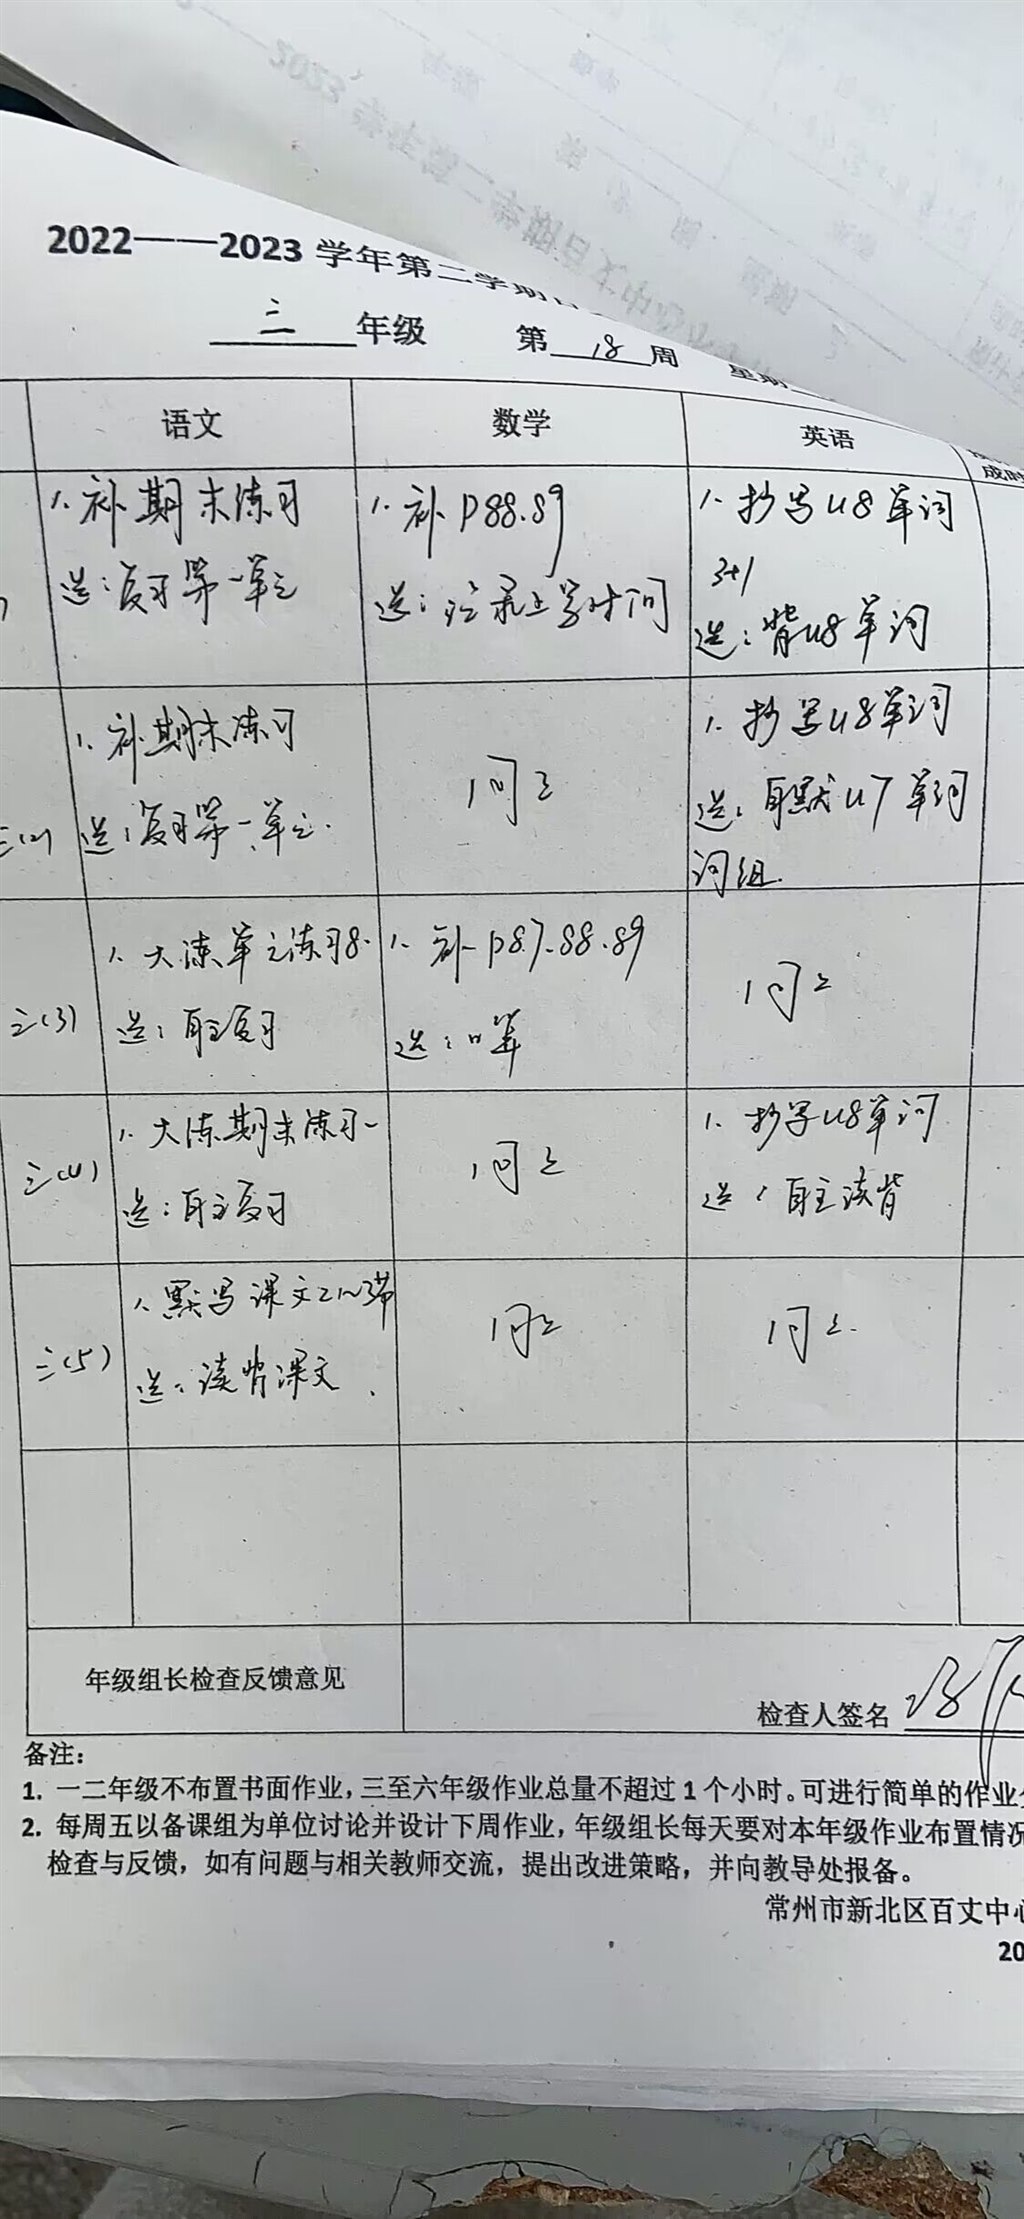 2022——2023 学年第二学期日
三 年级 第 18 周 星期
语文 数学 英语 成时
1. 补期末练习
选：复习第一单元
1. 补 P88.89
选：记录上学时间
1. 抄写U8单词
3+1
选：背U8单词
三(2)
1. 补期末练习
选：复习第一单元.
同上
1. 抄写U8单词
选：自默U7单词
词组.
三(3)
1. 大练单元练习8.
选：自主复习
1. 补P87.88.89
选：口算
同上
三(4)
1. 大练期末练习一
选：自主复习
同上
1. 抄写U8单词
选：自主读背
三(5)
1. 默写课文
选：读背课文.
同上
同上.
年级组长检查反馈意见
检查人签名
备注：
1. 一二年级不布置书面作业，三至六年级作业总量不超过 1 个小时。可进行简单的作业
2. 每周五以备课组为单位讨论并设计下周作业，年级组长每天要对本年级作业布置情况
检查与反馈，如有问题与相关教师交流，提出改进策略，并向教导处报备。
常州市新北区百丈中心
20